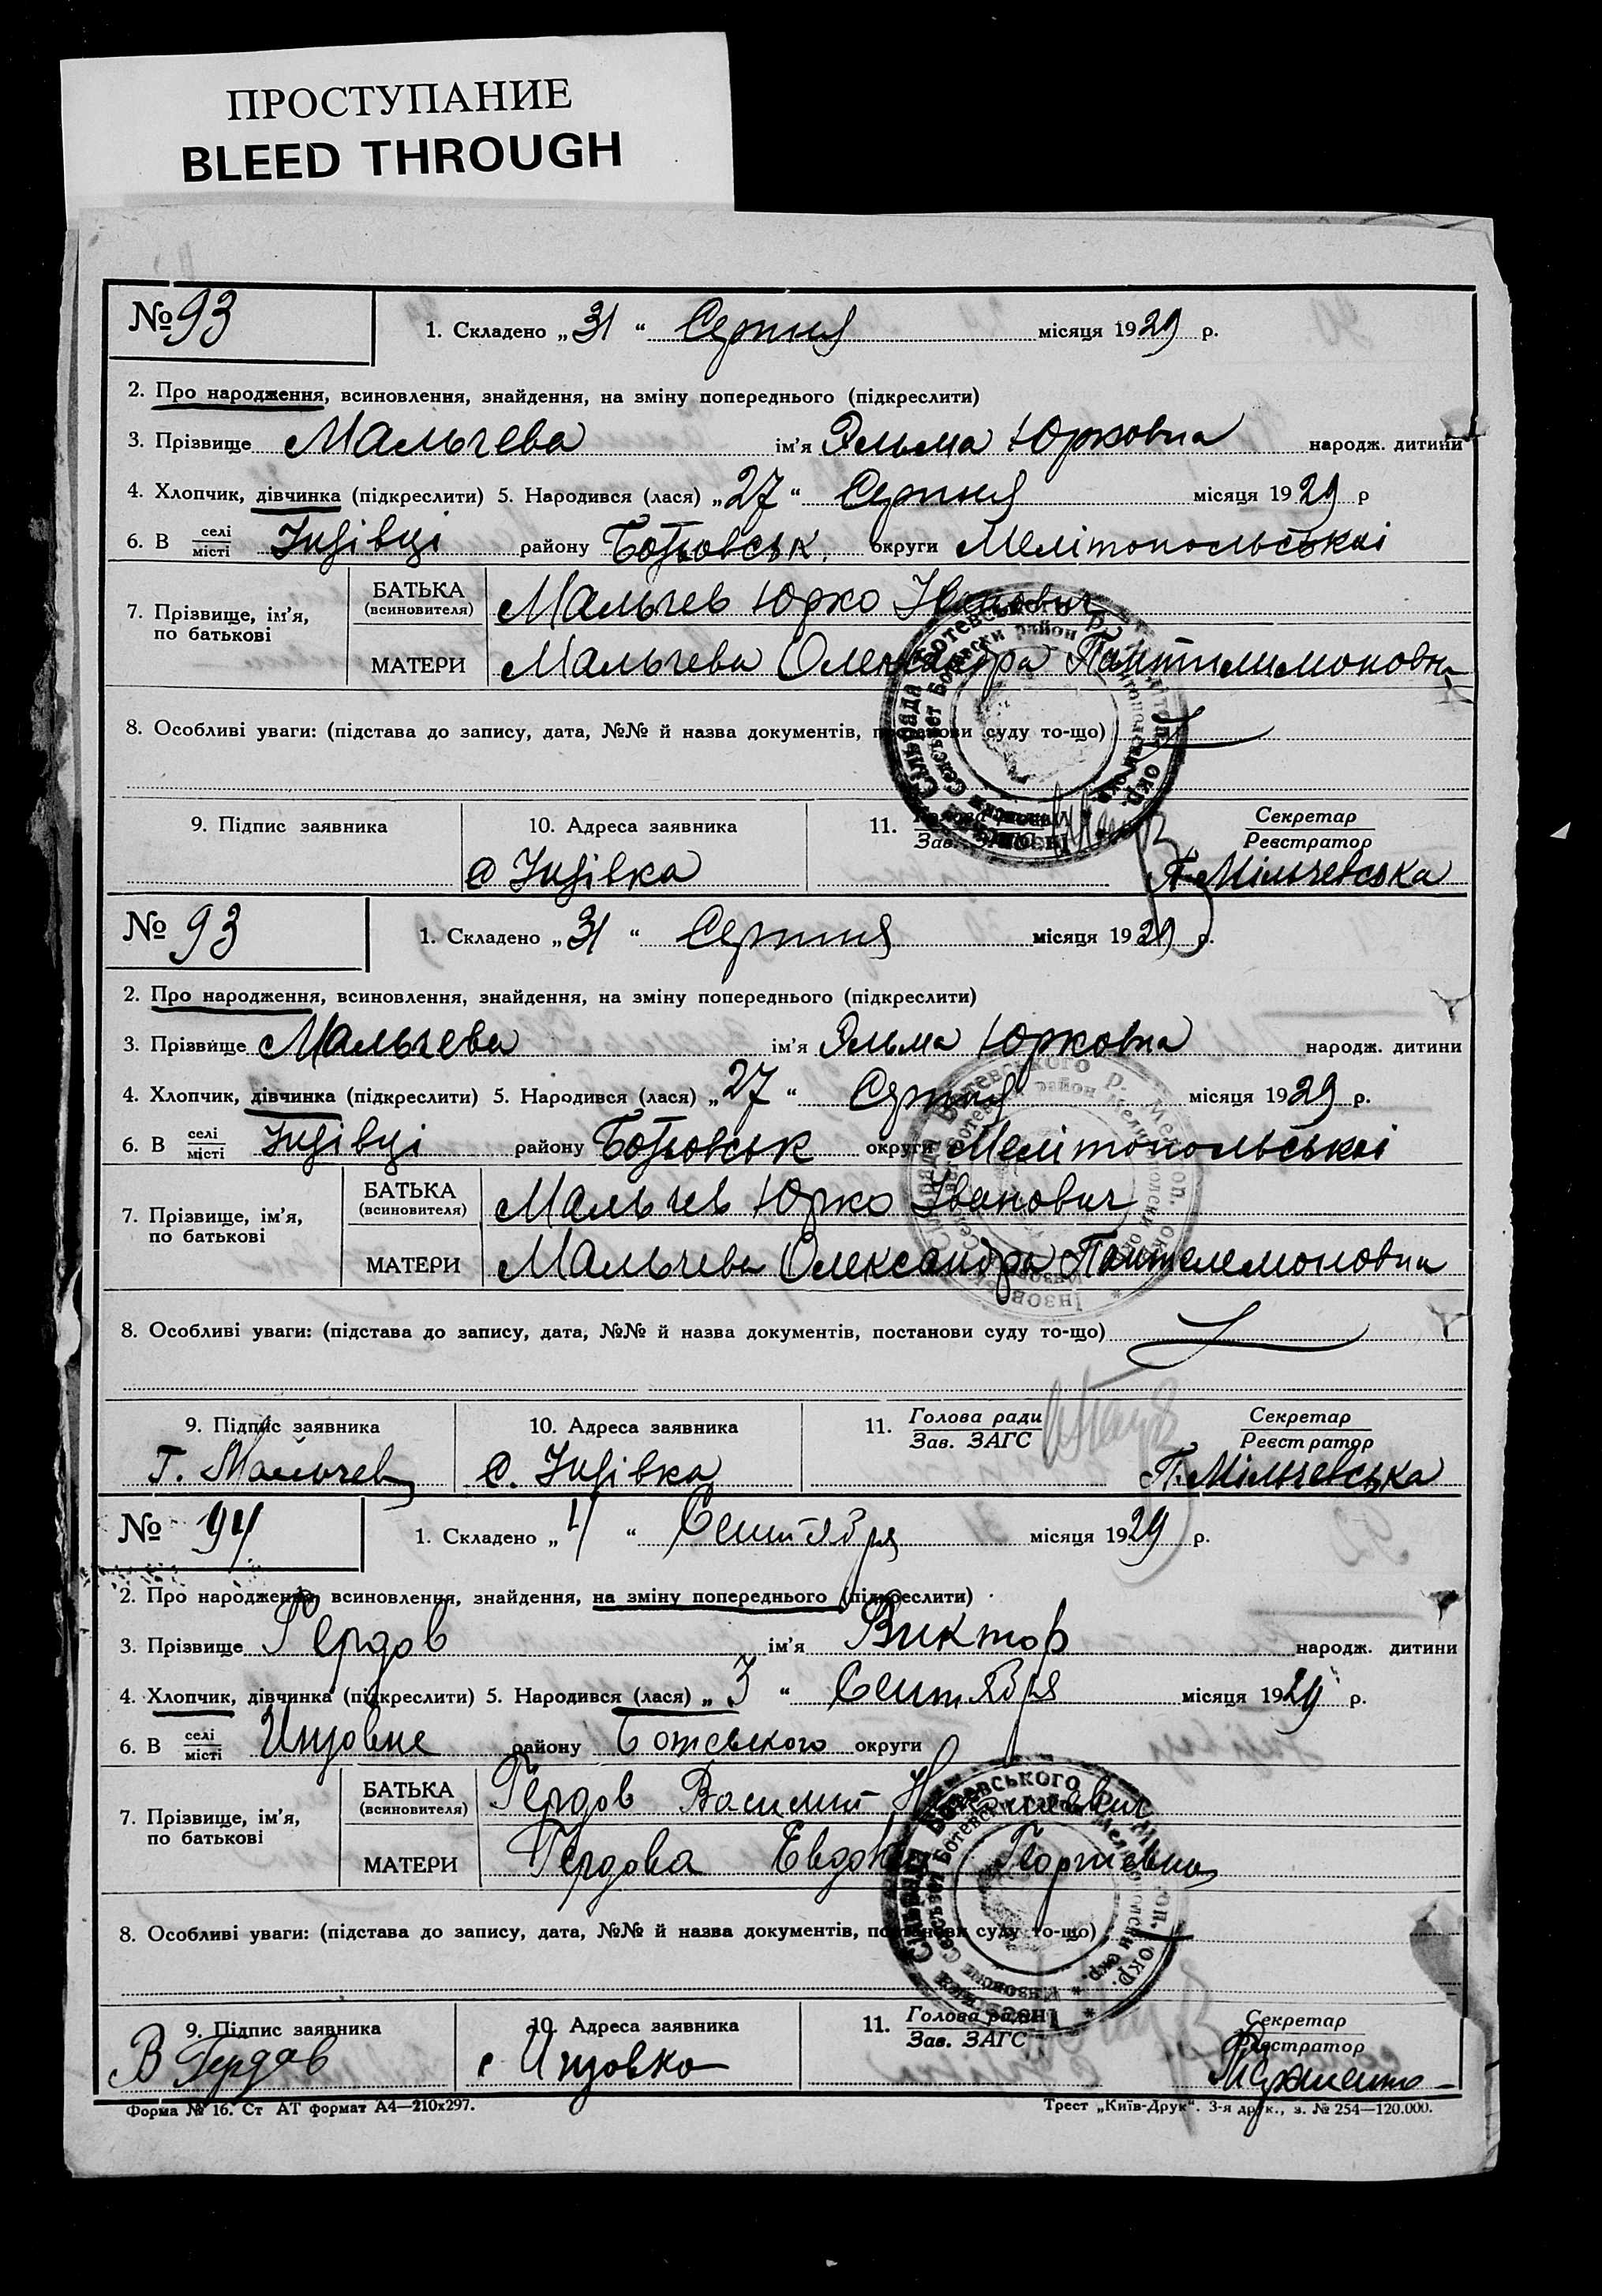 ПРОСТУПАНИЕ
BLEED THROUGH
№ 93
1. Складено „31“ Серпня місяця 1929 р.
2. Про народження, всиновлення, знайдення, на зміну попереднього (підкреслити)
3. Прізвище Мальчева ім'я Эльма Юрковна народж. дитини
4. Хлопчик, дівчинка (підкреслити) 5. Народився (лася) „27“ Серпня місяця 1929 р
6. В селі/місті Інзівці району Ботьовськ. округи Мелітопольськаі
7. Прізвище, ім'я, по батькові
БАТЬКА (всиновителя) Мальчев Юрко Іванович
МАТЕРИ Мальчева Олександра Пантилимоновна
8. Особливі уваги: (підстава до запису, дата, №№ й назва документів, постанови суду то-що)
9. Підпис заявника 10. Адреса заявника 11. Голова ради/Зав. ЗАГС Секретар/Реєстратор
с Інзівка П. Мільчевська
№ 93
1. Складено „31“ Серпня місяця 1929 р.
2. Про народження, всиновлення, знайдення, на зміну попереднього (підкреслити)
3. Прізвище Мальчева ім'я Эльма Юрковна народж. дитини
4. Хлопчик, дівчинка (підкреслити) 5. Народився (лася) „27“ Серпня місяця 1929 р.
6. В селі/місті Інзівці району Ботьовськ округи Мелітопольськаі
7. Прізвище, ім'я, по батькові
БАТЬКА (всиновителя) Мальчев Юрко Іванович
МАТЕРИ Мальчева Олександра Пантелемоновна
8. Особливі уваги: (підстава до запису, дата, №№ й назва документів, постанови суду то-що)
9. Підпис заявника 10. Адреса заявника 11. Голова ради/Зав. ЗАГС Секретар/Реєстратор
Г. Мальчев с. Інзівка П. Мільчевська
№ 94
1. Складено „4“ Сентября місяця 1929 р.
2. Про народження, всиновлення, знайдення, на зміну попереднього (підкреслити)
3. Прізвище Гердов ім'я Виктор народж. дитини
4. Хлопчик, дівчинка (підкреслити) 5. Народився (лася) „3“ Сентября місяця 1929 р.
6. В селі/місті Инзовке району Ботевского округи
7. Прізвище, ім'я, по батькові
БАТЬКА (всиновителя) Гердов Василий
МАТЕРИ Гердова Евдок Георгиевна
8. Особливі уваги: (підстава до запису, дата, №№ й назва документів, постанови суду то-що)
9. Підпис заявника 10. Адреса заявника 11. Голова ради/Зав. ЗАГС Секретар/Реєстратор
В Гердов с Инзовка
Форма № 16. Ст АТ формат А4—210х297. Трест „Київ-Друк“. 3-я друк., з. № 254—120.000.